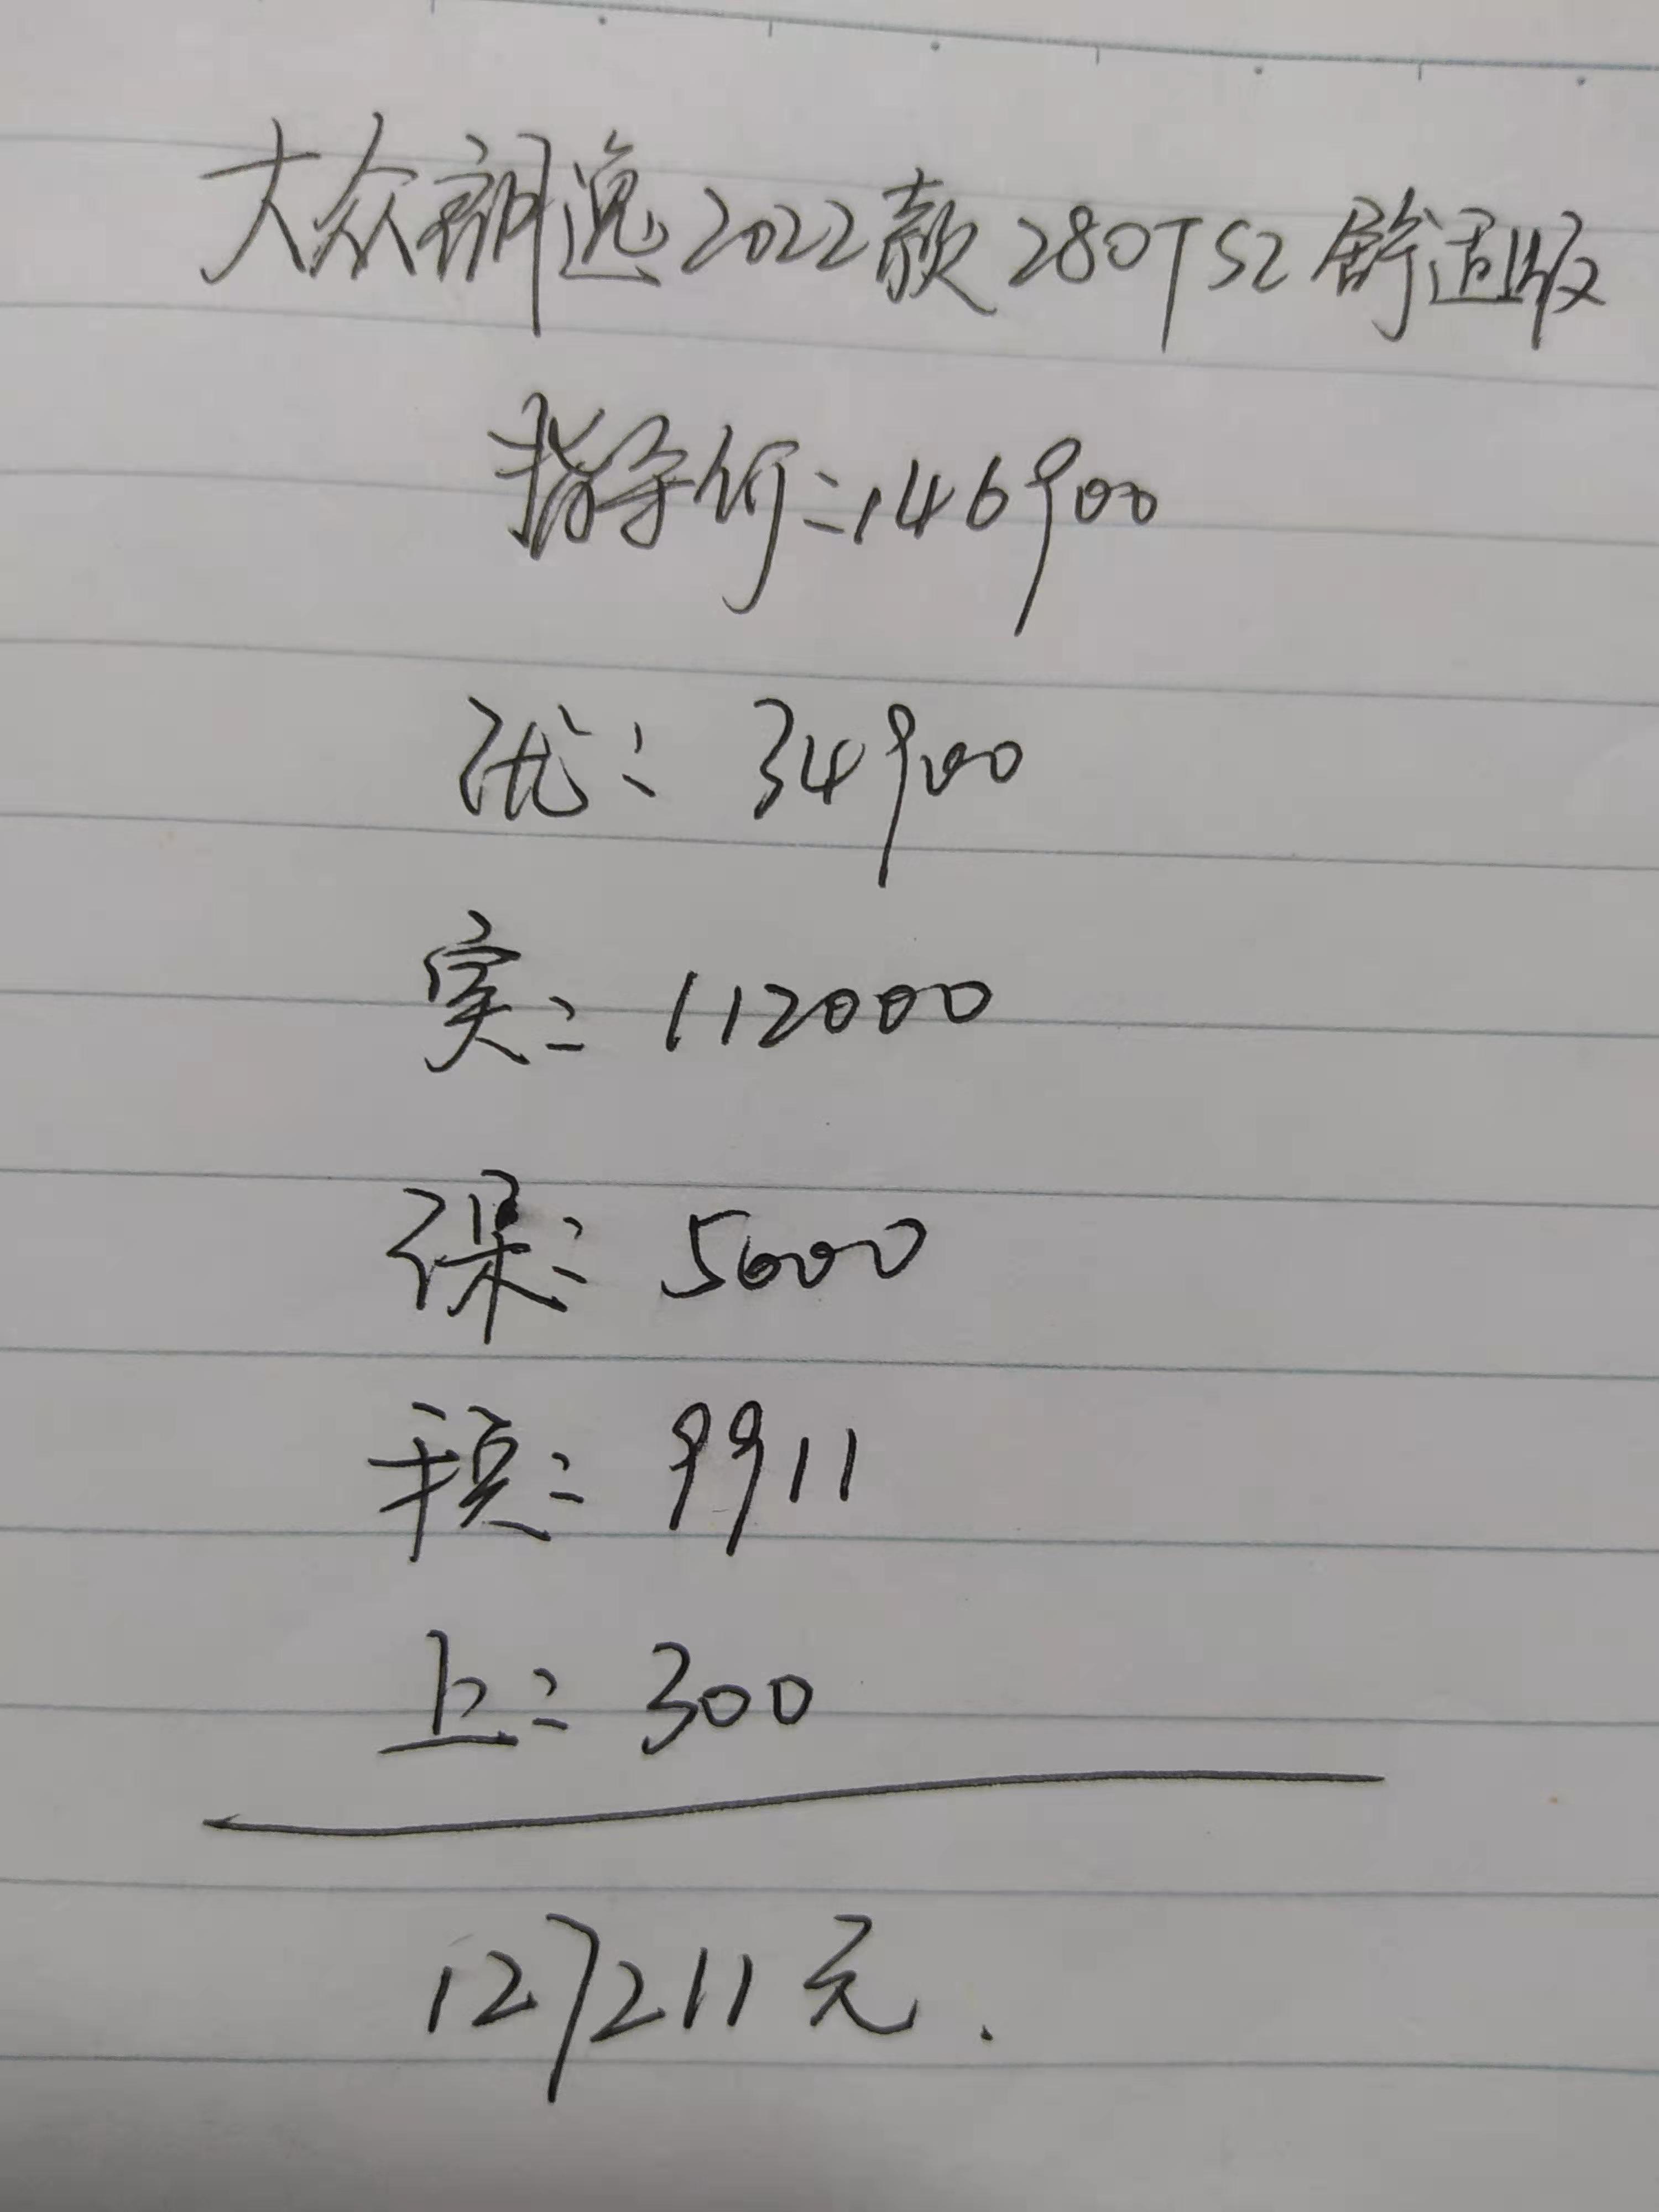 大众朗逸2022款280TSI舒适版
指导价:146900
优: 34900
实: 112000
保: 5000
税: 9911
上: 300
127211元.